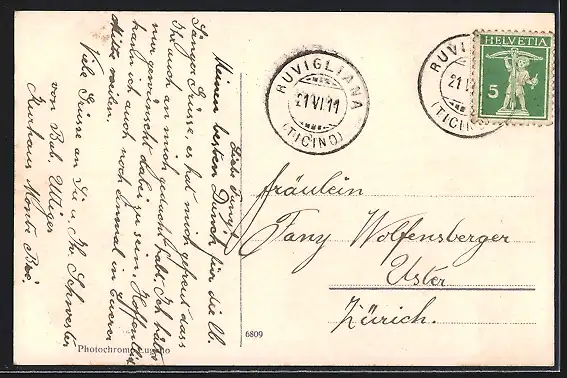 Liebe Fany!
Meinen besten Dank für die l.
Sänger Grüsse, es hat mich gefreut dass
Ihr auch an mich gedacht habt. Ich hätte
nur gewünscht dabei zu sein, Hoffentlich
kann ich auch noch einmal in Eurer
Mitte weilen.
Viele Grüsse an Sie u. Ih. Schwester
von Bab.
Kurhaus Monte Bré.
Photochrom Lugano
6809
RUVIGLIANA
21 VI 11
(TICINO)
RUVIG
21 V
(TICIN
HELVETIA
5
Fräulein
Fany Wolfensberger
Uster
Zürich.